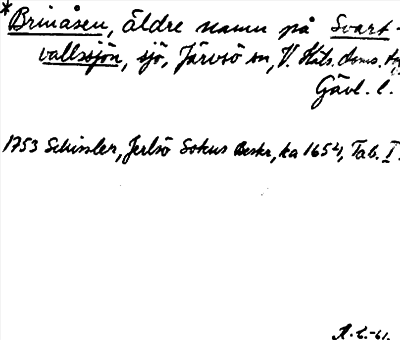 *Brinåsen, äldre namn på Svart-
vallssjön, sjö, Järvsö sn, V. Häls. doms.
Gävl. l.
1753 Schissler, Jerlsö Sokns Beskr, ka 1654, Tab. I.
A. E. -61.